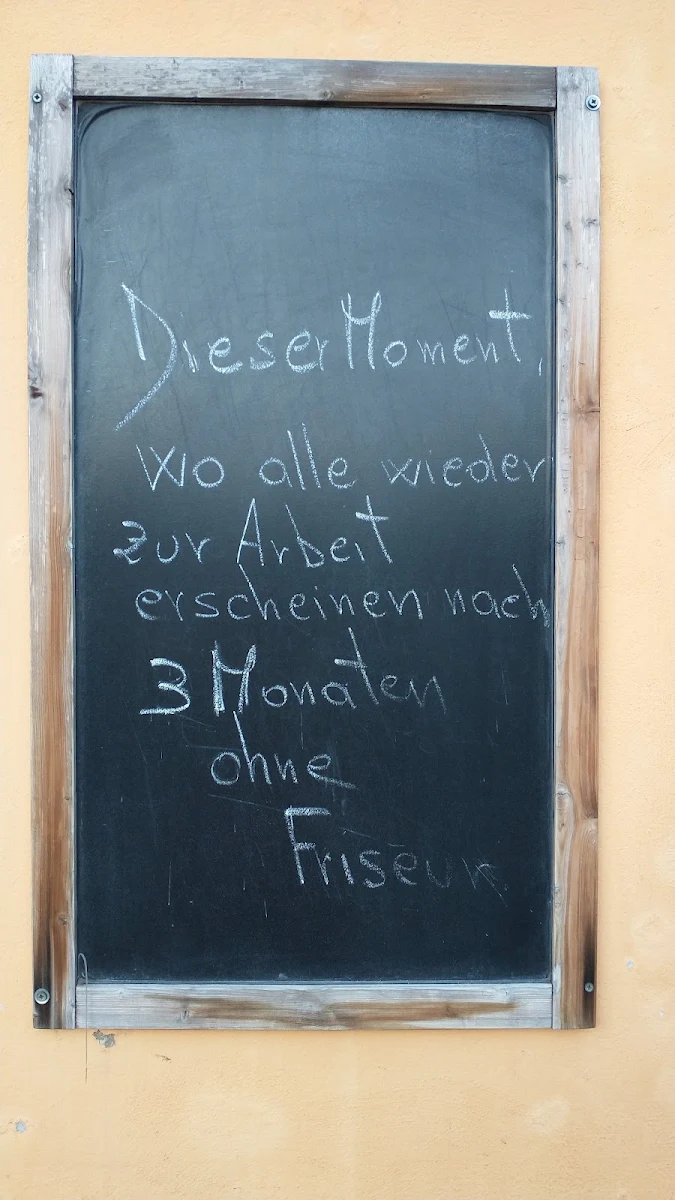 Dieser Moment,
wo alle wieder
zur Arbeit
erscheinen nach
3 Monaten
ohne
Friseur